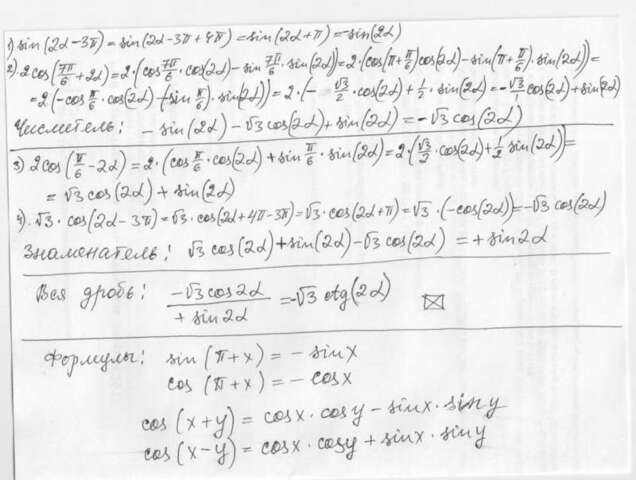 1) sin(2α-3π) = sin(2α-3π+4π) = sin(2α+π) = -sin(2α)
2) 2cos(7π/6+2α) = 2·(cos 7π/6 · cos(2α) - sin 7π/6 · sin(2α)) = 2·(cos(π+π/6)cos(2α) - sin(π+π/6)·sin(2α)) =
= 2(-cos π/6 · cos(2α) - (-sin π/6)·sin(2α)) = 2·(-√3/2 · cos(2α) + 1/2 · sin(2α) = -√3/1 cos(2α) + sin(2α)
Числитель: - sin(2α) - √3 cos(2α) + sin(2α) = -√3 cos(2α)
3) 2cos(π/6-2α) = 2·(cos π/6 · cos(2α) + sin π/6 · sin(2α) = 2·(√3/2 · cos(2α) + 1/2 sin(2α)) =
= √3 cos(2α) + sin(2α)
4) √3 · cos(2α-3π) = √3 · cos(2α+4π-3π) = √3 · cos(2α+π) = √3 · (-cos(2α)) = -√3 cos(2α)
Знаменатель: √3 cos(2α) + sin(2α) - √3 cos(2α) = + sin2α
Вся дробь: -√3 cos2α / + sin2α = -√3 ctg(2α)
Формулы: sin(π+x) = - sinx
cos(π+x) = - cosx
cos(x+y) = cosx · cosy - sinx · siny
cos(x-y) = cosx · cosy + sinx · siny